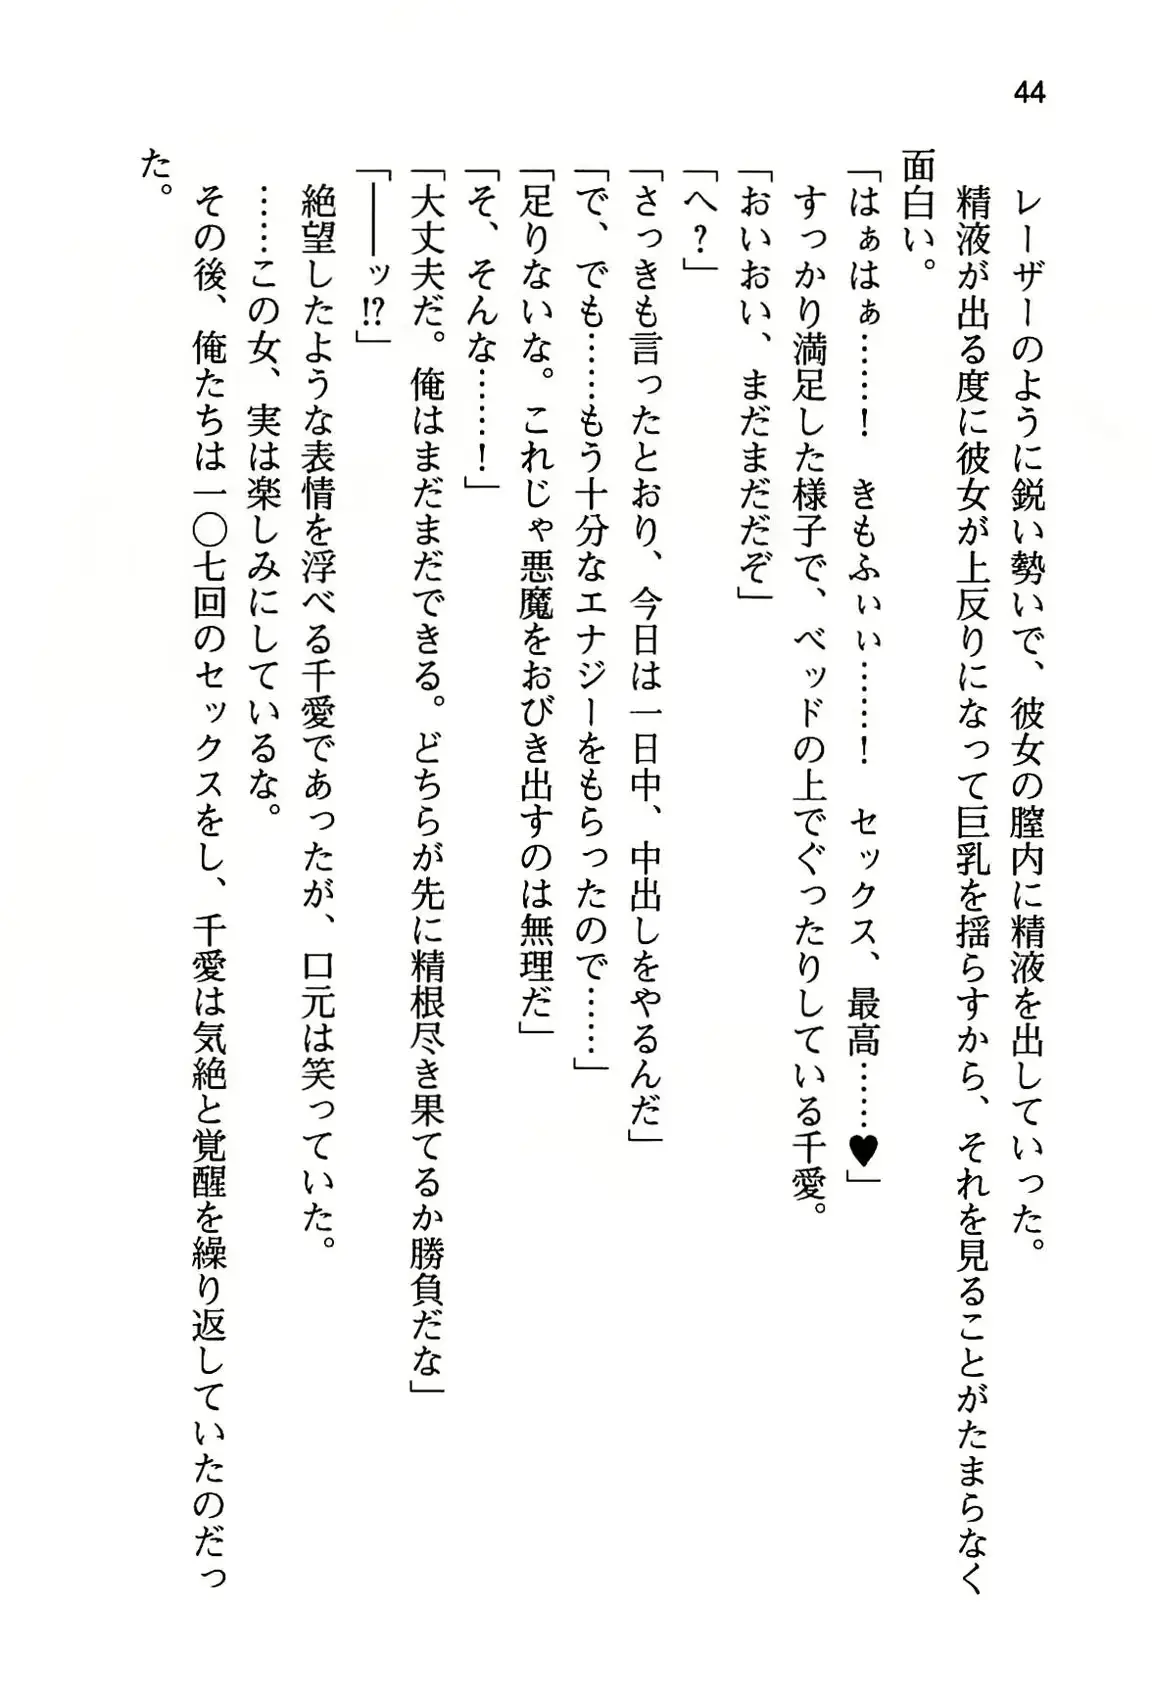 44
レーザーのように鋭い勢いで、彼女の膣内に精液を出していった。
精液が出る度に彼女が上反りになって巨乳を揺らすから、それを見ることがたまらなく
面白い。
「はぁはぁ……！　きもふぃぃ……！　セックス、最高……♥」
すっかり満足した様子で、ベッドの上でぐったりしている千愛。
「おいおい、まだまだだぞ」
「へ？」
「さっきも言ったとおり、今日は一日中、中出しをやるんだ」
「で、でも……もう十分なエナジーをもらったので……」
「足りないな。これじゃ悪魔をおびき出すのは無理だ」
「そ、そんな……！」
「大丈夫だ。俺はまだまだできる。どちらが先に精根尽き果てるか勝負だな」
「――ッ!?」
絶望したような表情を浮べる千愛であったが、口元は笑っていた。
……この女、実は楽しみにしているな。
その後、俺たちは一〇七回のセックスをし、千愛は気絶と覚醒を繰り返していたのだっ
た。